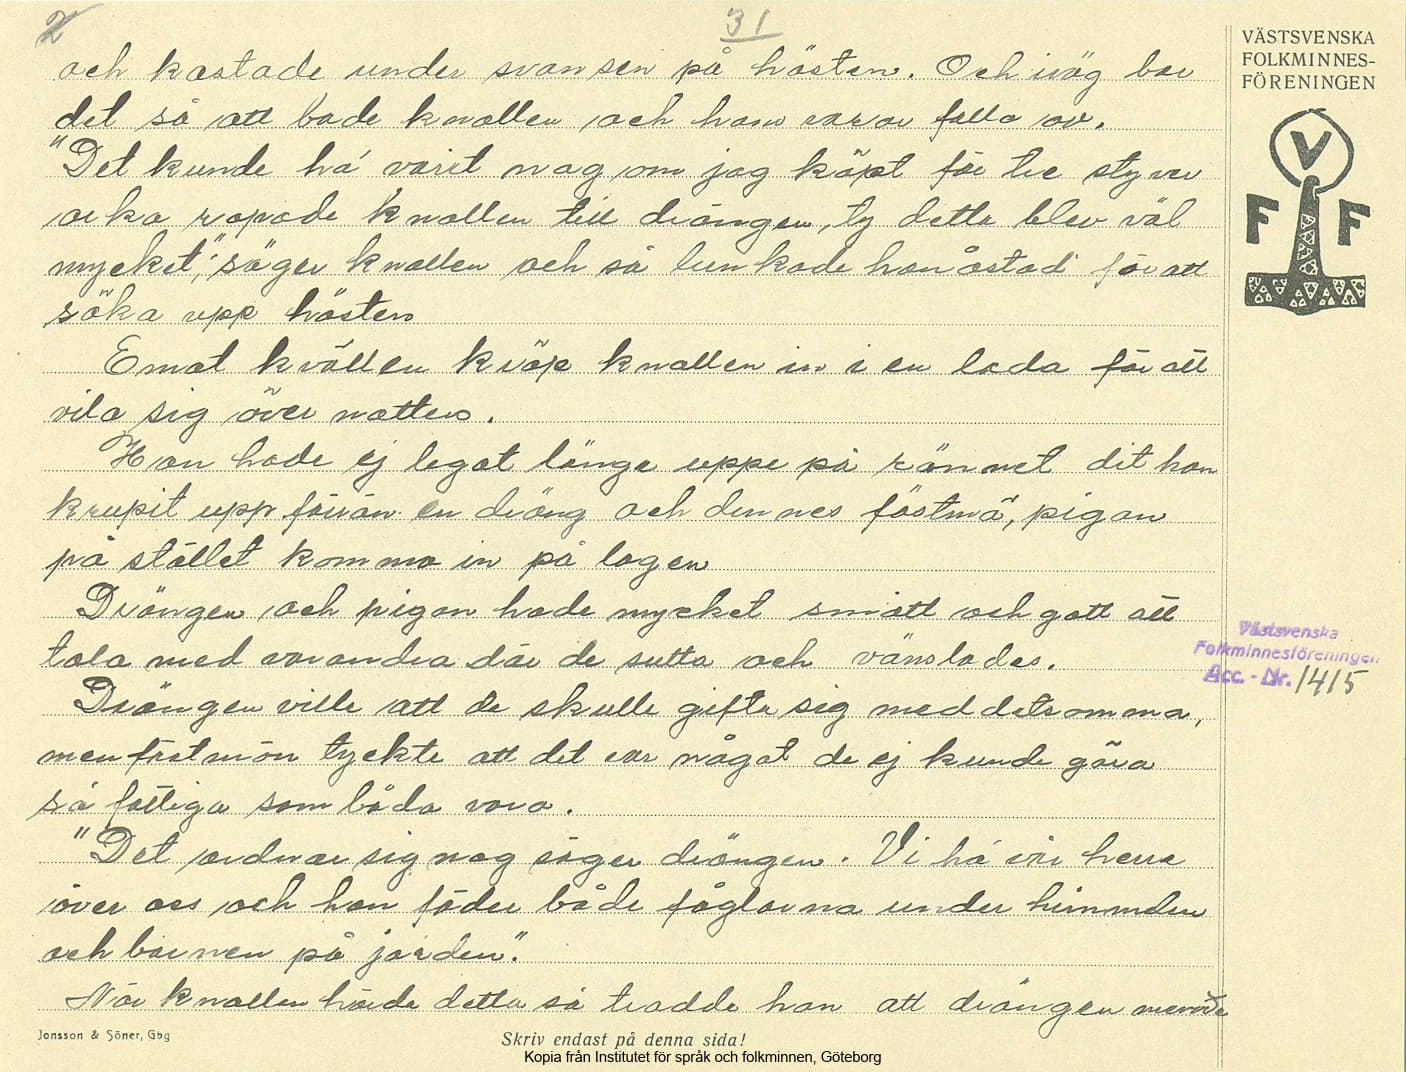 2
31
och kastade under svansen på hästen. Och iväg bar
det så att både knallen och hans varor fallo av.
"Det kunde ha' varit nog om jag köpt för tre styver
ropade knallen till drängen, ty detta blev väl
mycket," säger knallen och så lunkade han åstad för att
söka upp hästen
Emot kvällen kröp knallen in i en lada för att
vila sig över natten.
Han hade ej legat länge uppe på rännet dit han
krupit upp förrän en dräng och dennes fästmö, pigan
på stället komma in på logen
Drängen och pigan hade mycket smått och gott att
tala med varandra där de sutto och vänslades.
Drängen ville att de skulle gifta sig med detsamma,
men fästmön tyckte att det var något de ej kunde göra
så fattiga som båda voro.
"Det ordnar sig nog säger drängen. Vi ha' en herre
över oss och han föder både fåglarna under himmelen
och barnen på jorden."
När knallen hörde detta så trodde han att drängen menade
VÄSTSVENSKA
FOLKMINNES-
FÖRENINGEN
V
F F
Västsvenska
Folkminnesföreningen
Acc. - Nr. 1415
Jonsson & Söner, Gbg
Skriv endast på denna sida!
Kopia från Institutet för språk och folkminnen, Göteborg